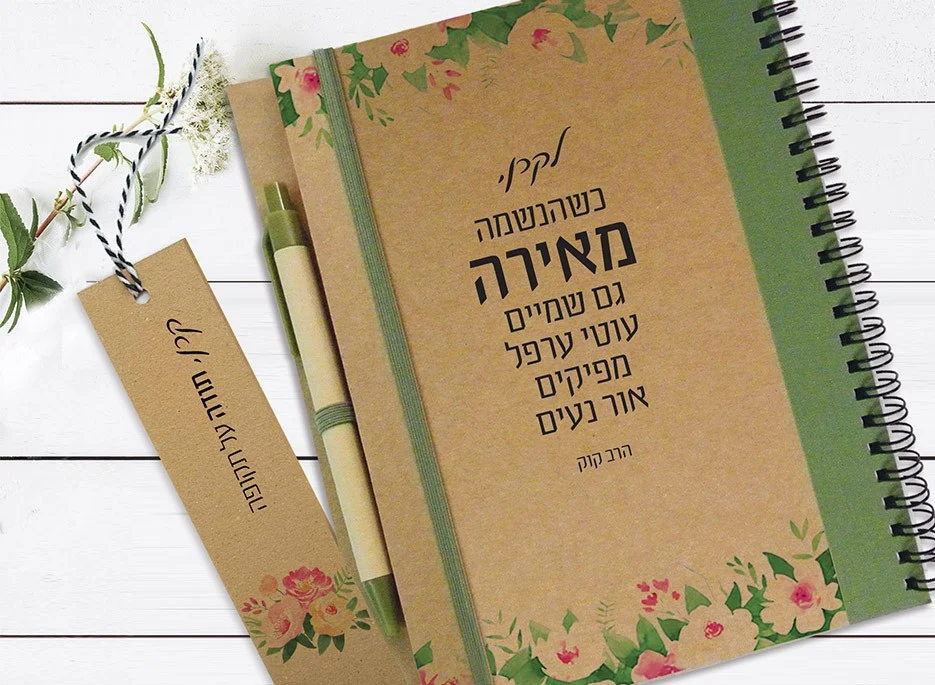 לקרני
כשהנשמה
מאירה
גם שמיים
עוטי ערפל
מפיקים
אור נעים
הרב קוק
קרני תודה על תקופה